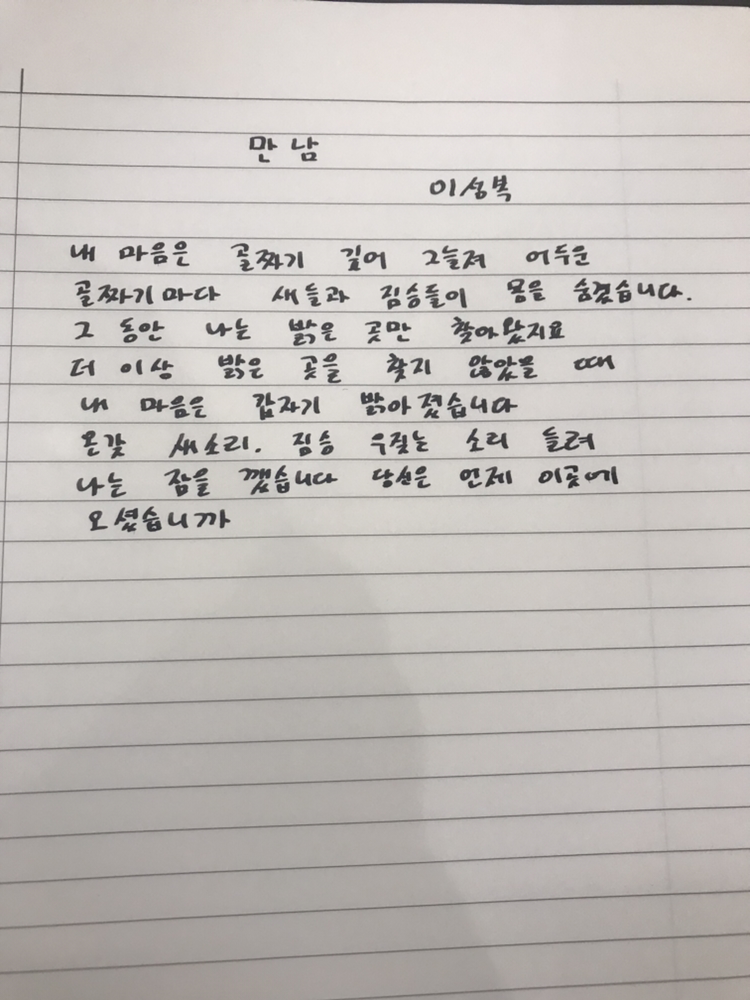 만남
이성복
내 마음은 골짜기 깊어 그늘져 어두운
골짜기마다 새들과 짐승들이 몸을 숨겼습니다.
그 동안 나는 밝은 곳만 찾아왔지요
더 이상 밝은 곳을 찾지 않았을 때
내 마음은 갑자기 밝아졌습니다
온갖 새소리. 짐승 우짖는 소리 들려
나는 잠을 깼습니다 당신은 언제 이곳에
오셨습니까